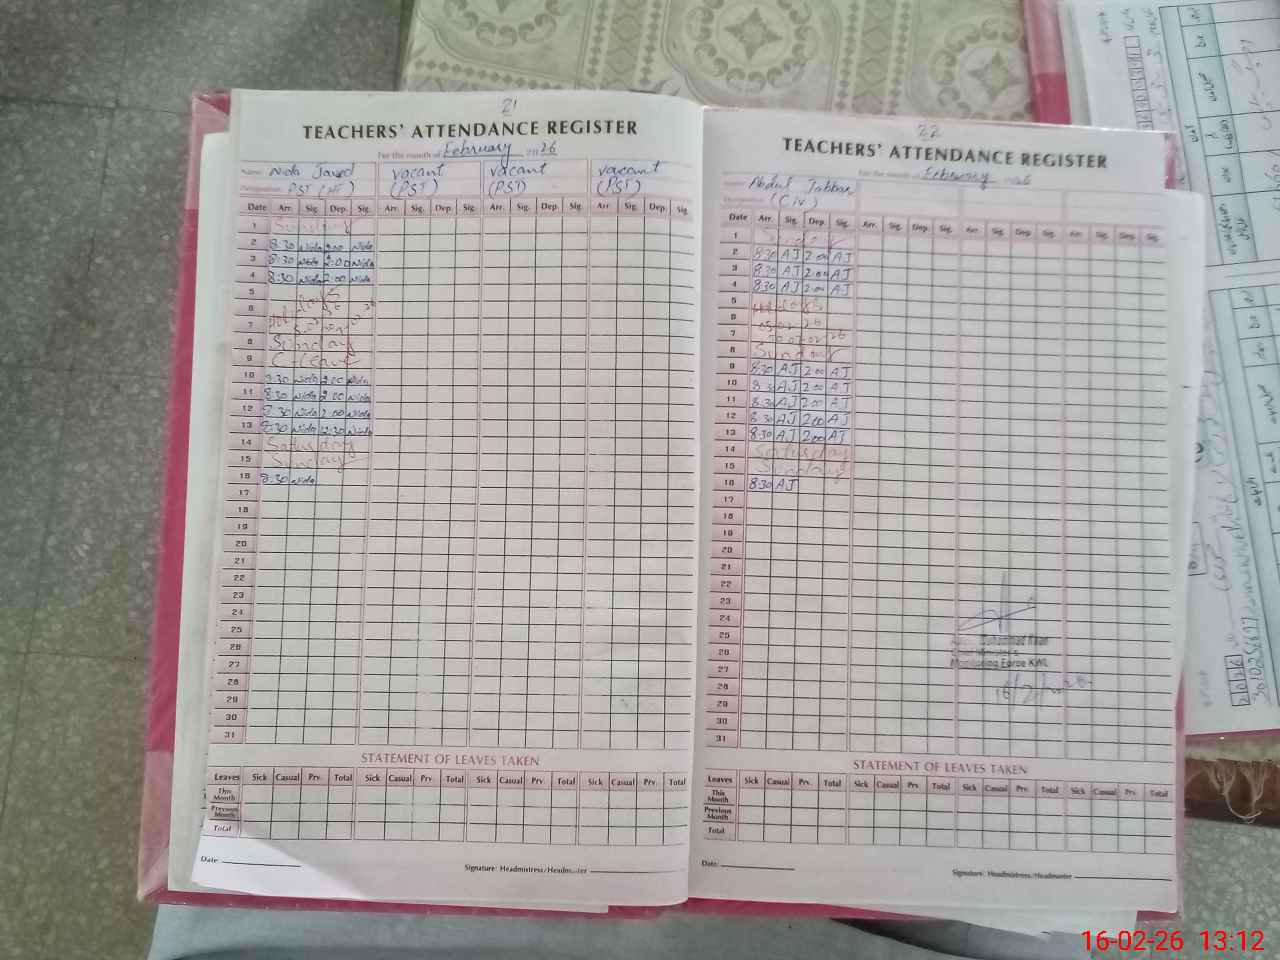 21
TEACHERS' ATTENDANCE REGISTER
For the month of February 2026
Name: Nida Javed vacant vacant vacant
Designation: PST (HT) (PST) (PST) (PST)
Date Arr. Sig. Dep. Sig. Arr. Sig. Dep. Sig. Arr. Sig. Dep. Sig. Arr. Sig. Dep. Sig.
1 Sunday
2 8:30 Nida 2:00 Nida
3 8:30 Nida 2:00 Nida
4 8:30 Nida 2:00 Nida
5
6
7
8 Sunday
9 C-leave
10 8:30 Nida 2:00 Nida
11 8:30 Nida 2:00 Nida
12 8:30 Nida 2:00 Nida
13 8:30 Nida 12:30 Nida
14 Saturday
15 Sunday
16 8:30 Nida
17
18
19
20
21
22
23
24
25
26
27
28
29
30
31
STATEMENT OF LEAVES TAKEN
Leaves Sick Casual Prv. Total Sick Casual Prv. Total Sick Casual Prv. Total Sick Casual Prv. Total
This Month
Previous Month
Total
Date:
Signature: Headmistress/Headmaster
22
TEACHERS' ATTENDANCE REGISTER
For the month of February 2026
Name: Abdul Jabbar
Designation: (C.IV)
Date Arr. Sig. Dep. Sig. Arr. Sig. Dep. Sig. Arr. Sig. Dep. Sig. Arr. Sig. Dep. Sig.
1 Sunday
2 8:30 AJ 2:00 AJ
3 8:30 AJ 2:00 AJ
4 8:30 AJ 2:00 AJ
5 Holidays
6 05-02-26
7 to 07-02-26
8 Sunday
9 8:30 AJ 2:00 AJ
10 8:30 AJ 2:00 AJ
11 8:30 AJ 2:00 AJ
12 8:30 AJ 2:00 AJ
13 8:30 AJ 2:00 AJ
14 Saturday
15 Sunday
16 8:30 AJ
17
18
19
20
21
22
23
24
25
26
27
28
29
30
31
Muhammad Khan
Chief Minister's
Monitoring Force KWL
16/2/2026
STATEMENT OF LEAVES TAKEN
Leaves Sick Casual Prv. Total Sick Casual Prv. Total Sick Casual Prv. Total Sick Casual Prv. Total
This Month
Previous Month
Total
Date:
Signature: Headmistress/Headmaster
16-02-26 13:12